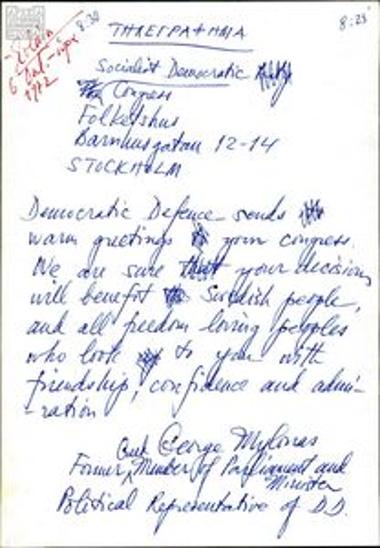 8:30
8:25
6 Oct.
1972
ΤΗΛΕΓΡΑΦΗΜΑ
Socialist Democratic
Congress
Folketshus
Barnhusgatan 12-14
STOCKHOLM
Democratic Defence sends
warm greetings your congress.
We are sure that your decisions
will benefit Swedish people,
and all freedom loving peoples
who look to you with
friendship, confidence and admi-
-ration
George Mylonas
Former Member of Parliament and
Minister
Political Representative of D.D.